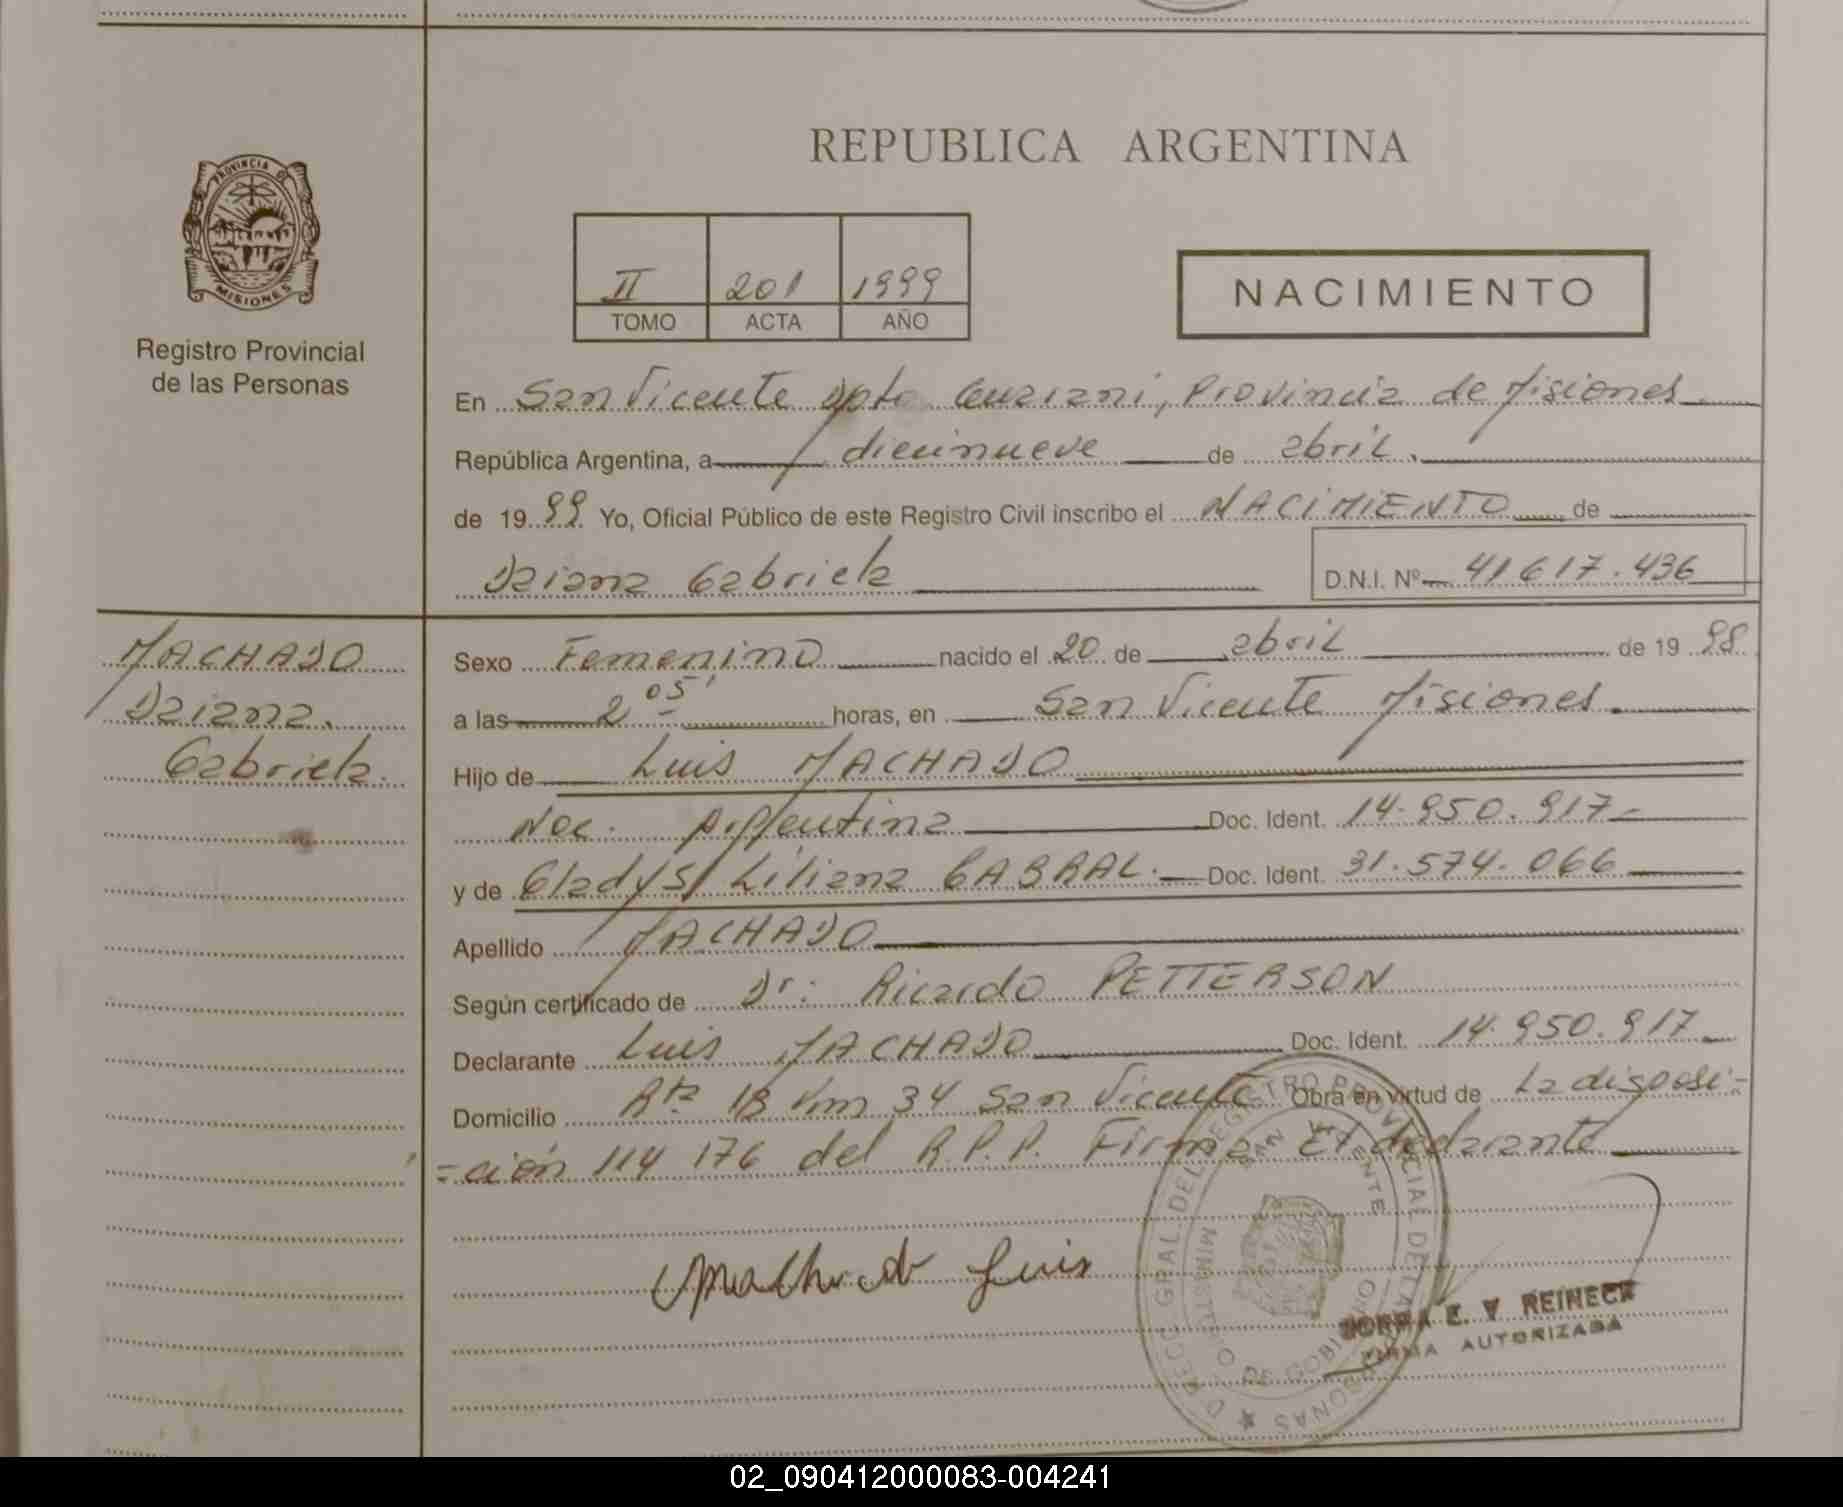 REPUBLICA ARGENTINA
PROVINCIA DE
MISIONES
Registro Provincial
de las Personas
II 201 1999
TOMO ACTA AÑO
NACIMIENTO
En San Vicente Dpto Guarani, Provincia de Misiones
República Argentina, a diecinueve de abril.
de 1999. Yo, Oficial Público de este Registro Civil inscribo el NACIMIENTO de
Daiana Gabriela D.N.I. Nº 41617.436
MACHADO
Daiana.
Gabriela.
Sexo Femenino nacido el 20 de abril de 1998
a las 2 05' horas, en San Vicente Misiones.
Hijo de Luis MACHADO
Nac. Argentina Doc. Ident. 14.950.917-
y de Gladys Liliana CABRAL. Doc. Ident. 31.574.066
Apellido MACHADO
Según certificado de Dr: Ricardo PETTERSON
Declarante Luis MACHADO Doc. Ident. 14.950.917
Domicilio Rta 13 Km 34 San Vicente Obra en virtud de La disposi-
=ción 114 176 del R.P.P. Firma El declarante
Machado Luis
DIRECC GRAL DEL REGISTRO PROVINCIAL DE LAS PERSONAS
SAN VICENTE
MINISTERIO DE GOBIERNO
E. V REINECK
FIRMA AUTORIZADA
02_090412000083-004241